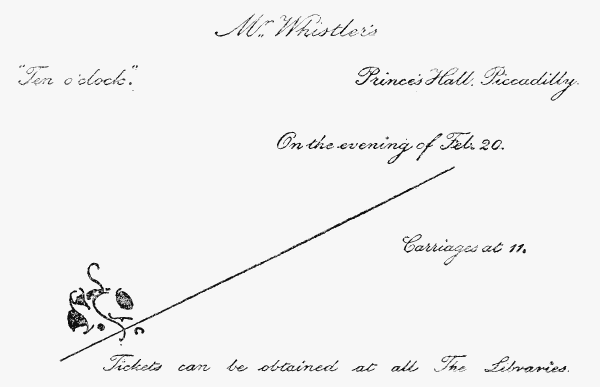 Mr. Whistler's
"Ten o'clock." Prince's Hall. Piccadilly.
On the evening of Feb. 20.
Carriages at 11.
Tickets can be obtained at all The Libraries.